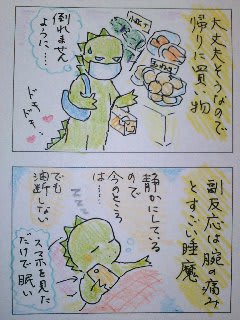 大丈夫そうなので
帰りに買い物
倒れません
ように……
ドキ
ドキ
副反応は腕の痛み
とすごい睡魔
静かにしている
ので
今のところ
は……
でも
油断しない
スマホを見た
だけで眠い
zzz